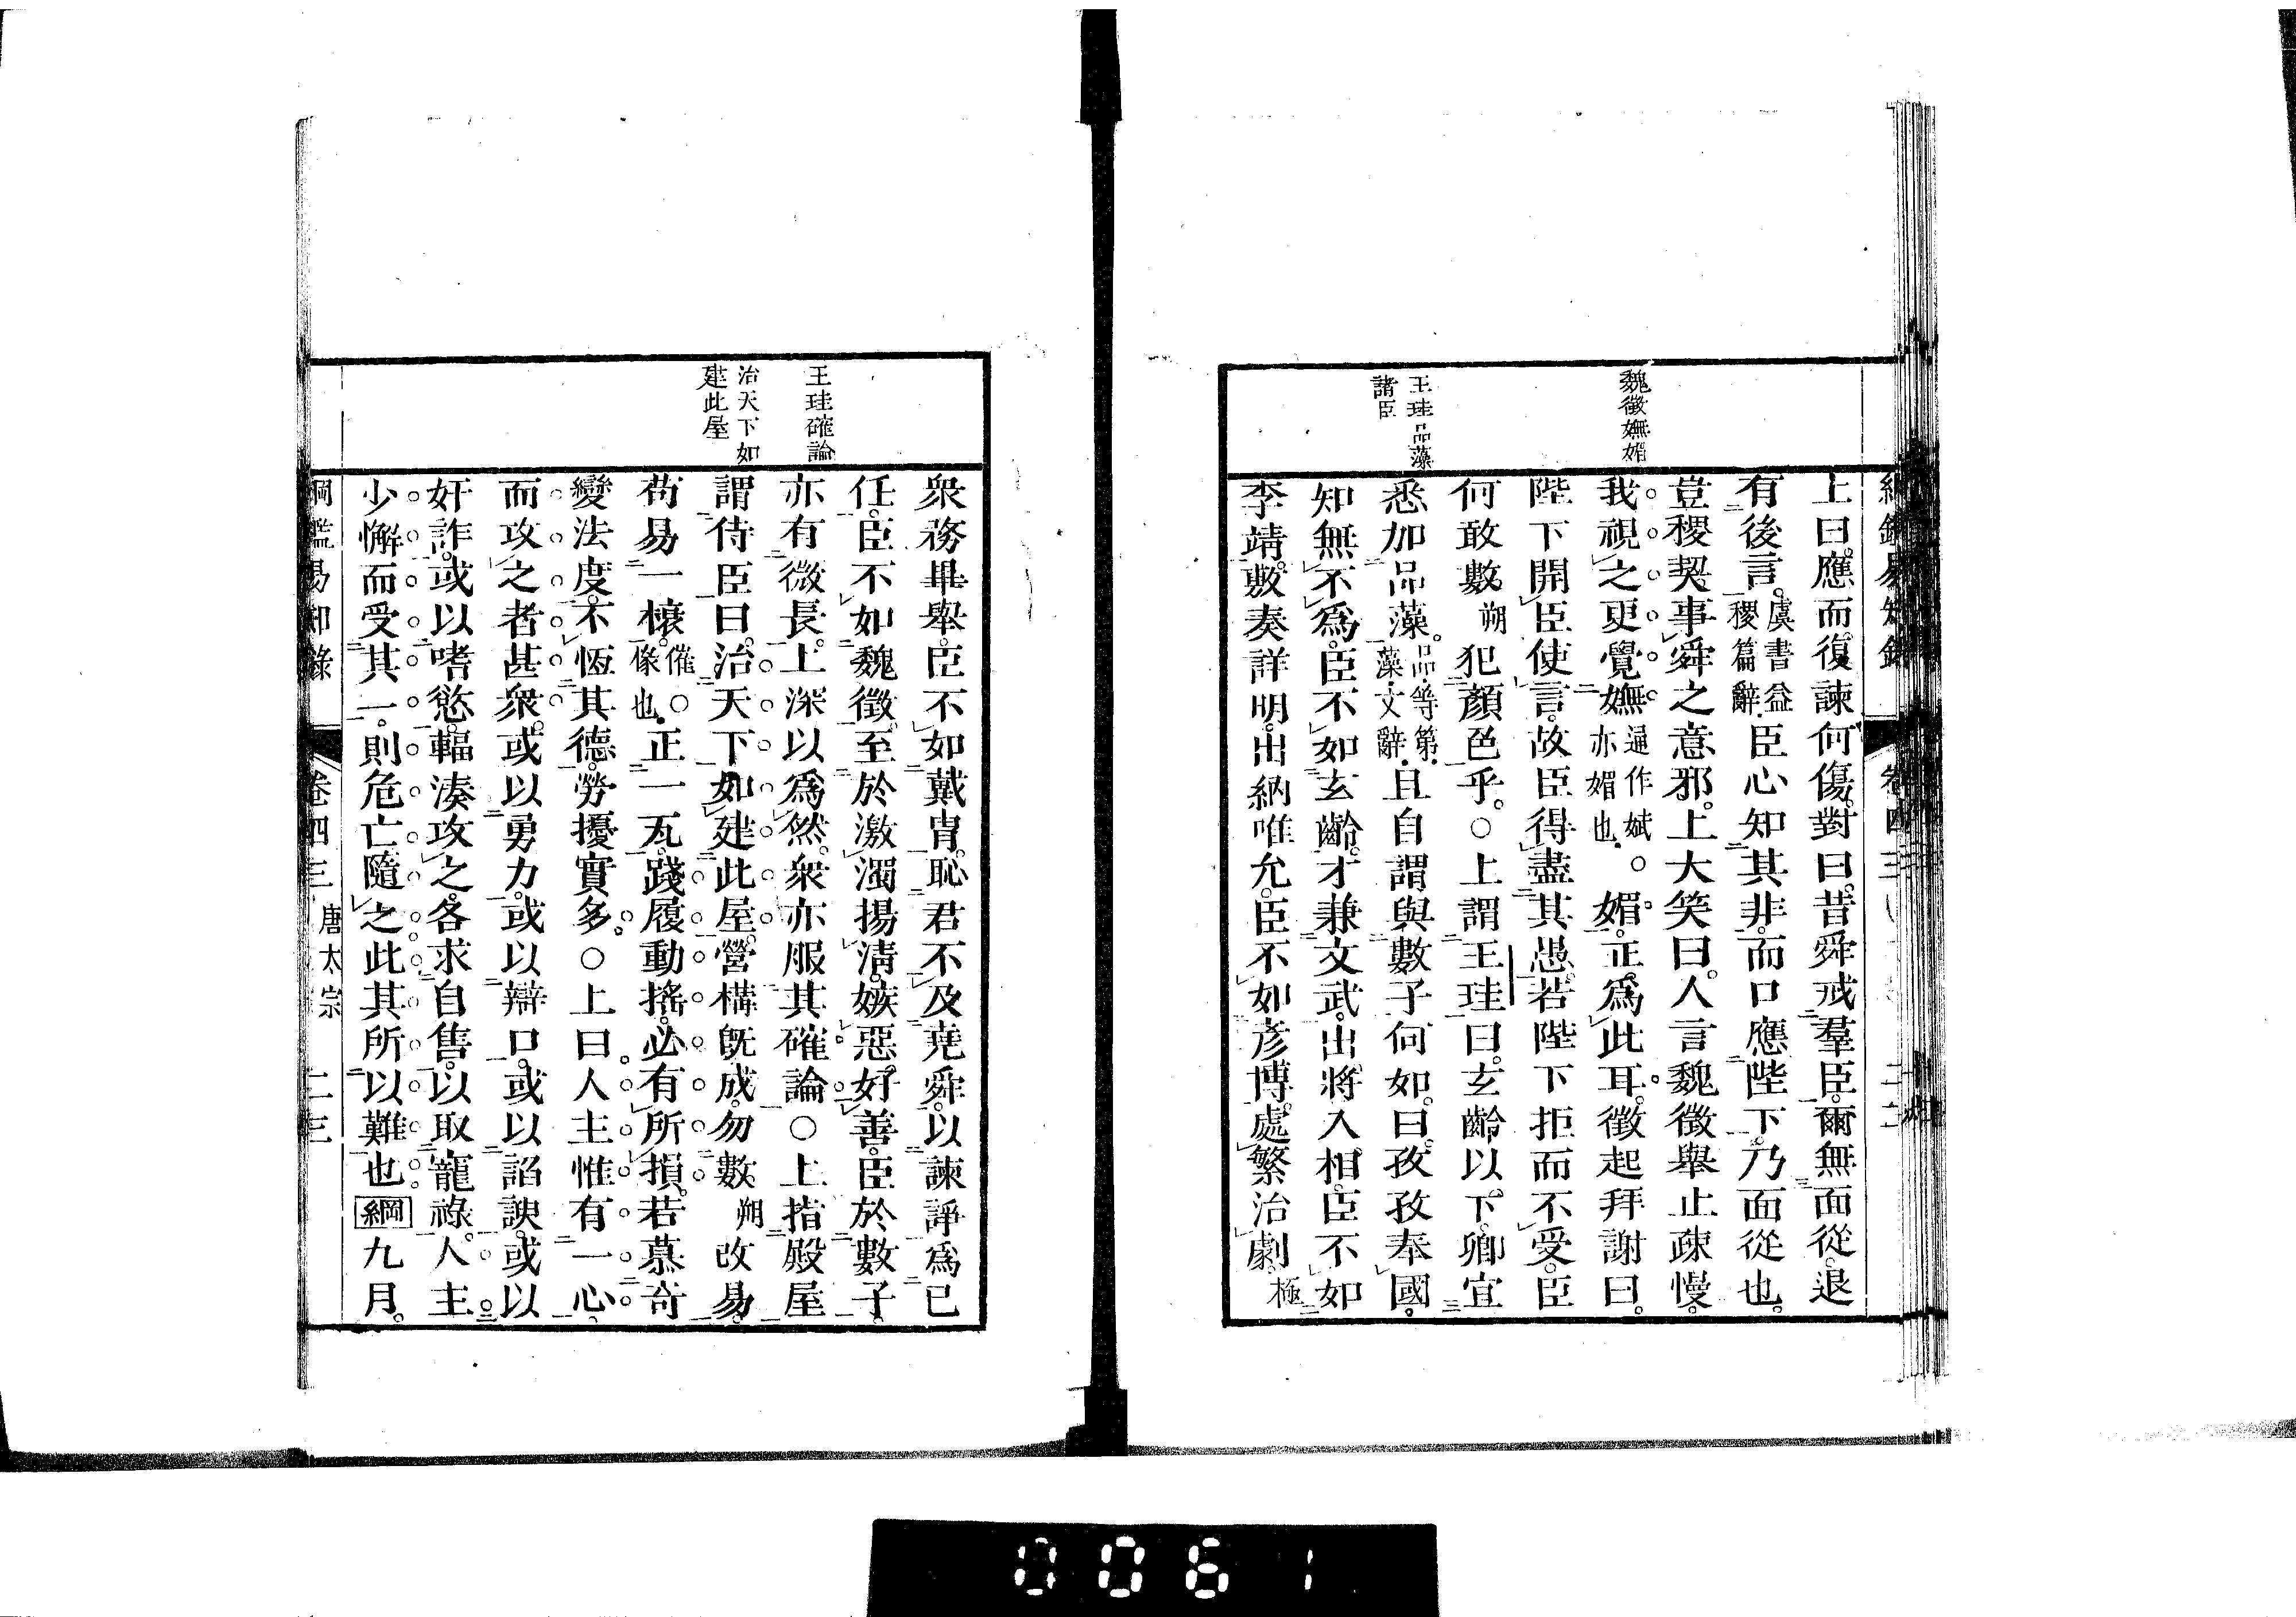 魏徵嫵媚
王珪品藻
諸臣
上曰。應而復諫何傷。對曰。昔舜戒羣臣。爾無面從。退
有後言。虞書益稷篇辭。臣心知其非。而口應陛下。乃面從也。
豈稷契事舜之意邪。上大笑曰。人言魏徵舉止疎慢。
我視之更覺嫵逼作娬。亦媚也。媚。正爲此耳。徵起拜謝曰。
陛下開臣使言。故臣得盡其愚。若陛下拒而不受。臣
何敢數朔犯顏色乎。○上謂王珪曰。玄齡以下。卿宜
悉加品藻。品。等第。藻。文辭。且自謂與數子何如。曰。孜孜奉國。
知無不爲。臣不如玄齡。才兼文武。出將入相。臣不如
李靖。敷奏詳明。出納唯允。臣不如彥博。處繁治劇。極
王珪確論
治天下如
建此屋
衆務畢舉。臣不如戴胄。恥君不及堯舜。以諫諍爲己
任。臣不如魏徵。至於激濁揚淸。嫉惡好善。臣於數子。
亦有微長。上深以爲然。衆亦服其確論。○上指殿屋
謂侍臣曰。治天下如建此屋。營構旣成。勿數朔改易。
苟易一榱。催。榱也。○正一瓦。踐履動搖。必有所損。若慕奇
變法度。不恆其德。勞擾實多。○上曰。人主惟有一心。
而攻之者甚衆。或以勇力。或以辯口。或以諂諛。或以
奸詐。或以嗜慾。輻湊攻之。各求自售。以取寵祿。人主
少懈而受其一。則危亡隨之。此其所以難也。綱九月。
綱鑑易知錄 卷四三 唐太宗 二三
0061